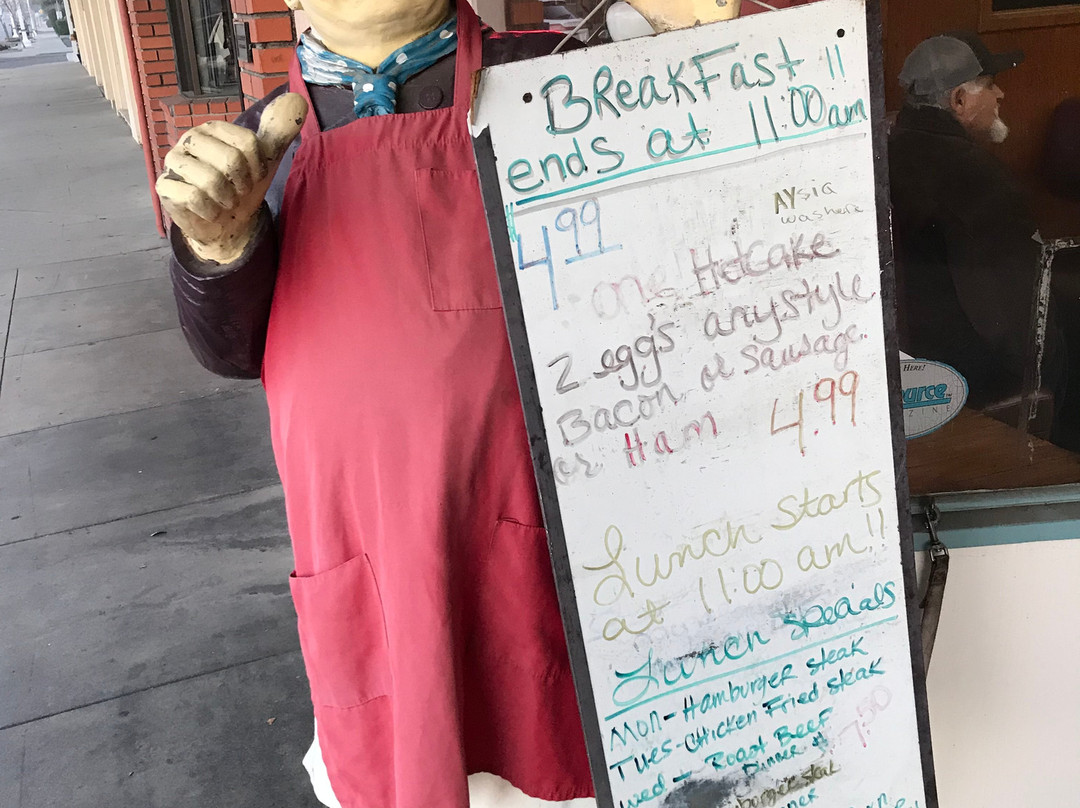 BReakFast !!
ends at 11:00am
$4.99
AYsia
washere
one Hotcake
2 egg's anystyle
Bacon or Sausage.
or Ham 4.99
Lunch starts
at 11:00 am!!
Lunch Specials
Mon-Hamburger Steak
Tues-Chicken Fried Steak
Wed - Roast Beef
Dinner $7.50
HERE!
urce
ZINE